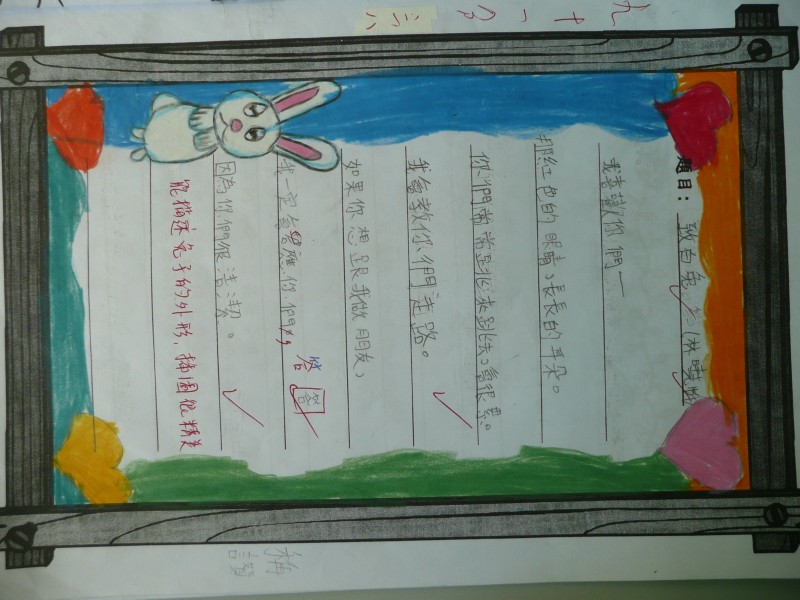 九十一分
題目：致白兔
我喜歡你們—
那紅色的眼睛、長長的耳朵。
你們常常跳來跳去、會很累。
我會教你們走路。
如果你想跟我做朋友、
我一定會答應你們，
答
因為你們很潔潔。
能描述兔子的外形，插圖很精美